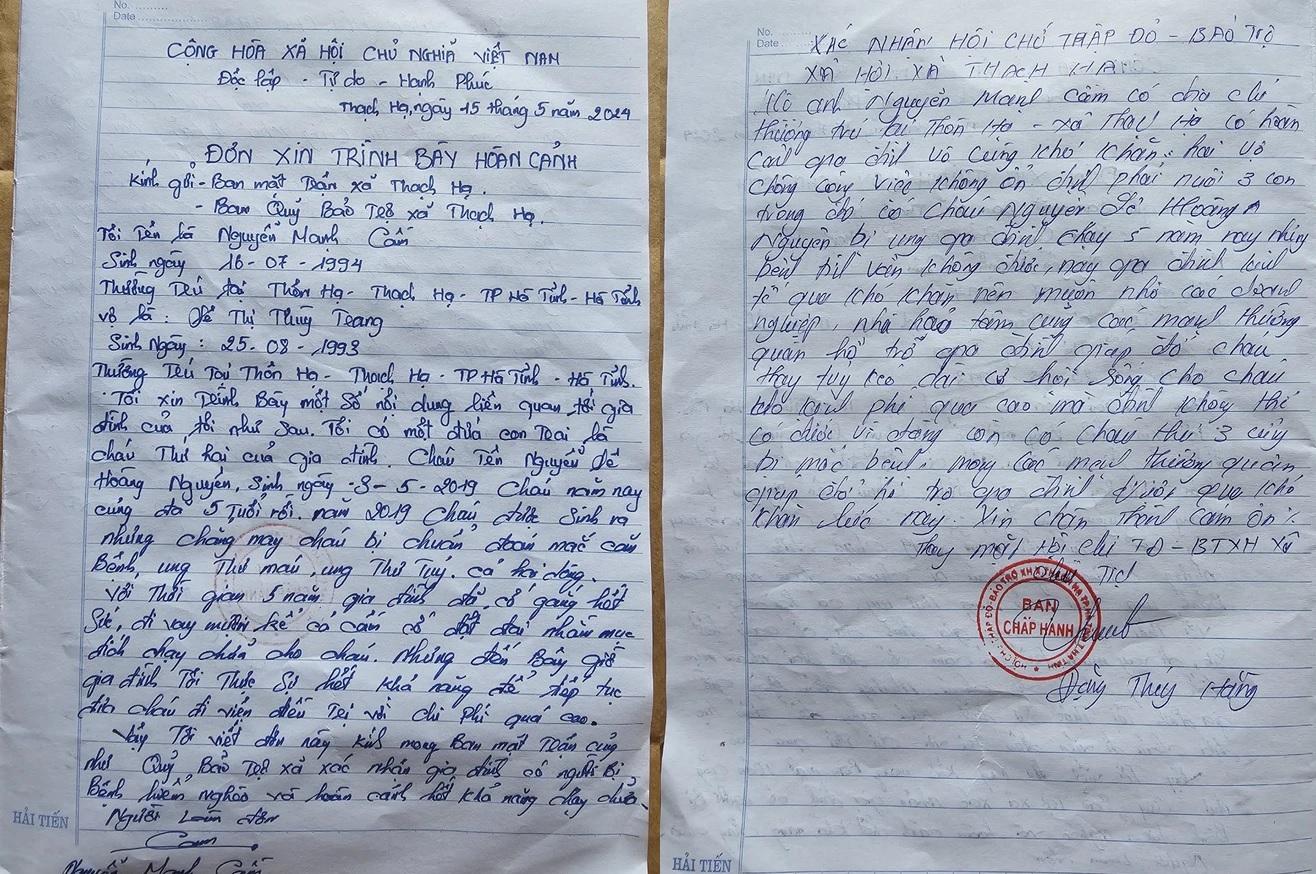 No.
Date
CỘNG HÒA XÃ HỘI CHỦ NGHĨA VIỆT NAM
Độc lập - Tự do - Hạnh Phúc
Thạch Hạ, ngày 15 tháng 5 năm 2024
ĐƠN XIN TRÌNH BÀY HOÀN CẢNH
Kính gửi - Ban mặt Trận xã Thạch Hạ.
- Ban Quỹ Bảo Trợ xã Thạch Hạ.
Tôi Tên là Nguyễn Mạnh Cầm
Sinh ngày 16-07-1994
Thường Trú tại Thôn Hạ - Thạch Hạ - TP Hà Tĩnh - Hà Tĩnh
vợ là: Lê Thị Thùy Trang
Sinh Ngày: 25-08-1993
Thường Trú Tại Thôn Hạ - Thạch Hạ - TP Hà Tĩnh - Hà Tĩnh.
Tôi xin Trình Bày một Số nội dung liên quan tới gia
đình của tôi như Sau. Tôi có một đứa con Trai là
cháu Thứ hai của gia đình. Cháu Tên Nguyễn Lê
Hoàng Nguyên, Sinh ngày -3-5-2019 Cháu năm nay
cũng đã 5 Tuổi rồi. năm 2019 Cháu được Sinh ra
nhưng chẳng may cháu bị chuẩn đoán mắc căn
Bệnh, ung Thư máu, ung Thư Tủy. cả hai dòng.
với Thời gian 5 năm gia đình đã cố gắng hết
Sức, đi vay mượn kể cả cầm cố đất đai nhằm mục
đích chạy chữa cho cháu. Nhưng đến Bây giờ
gia đình Tôi Thực Sự hết khả năng để tiếp tục
đưa cháu đi viện điều Trị với chi Phí quá cao.
Vậy Tôi viết đơn này kính mong Ban mặt Trận cũng
như Quỹ Bảo Trợ xã xác nhận gia đình có người Bị
Bệnh hiểm nghèo và hoàn cảnh hết khả năng chạy chữa.
Người Làm đơn
Cầm
Nguyễn Mạnh Cầm
HẢI TIẾN
No.
Date
XÁC NHẬN HỘI CHỮ THẬP ĐỎ - BẢO TRỢ
XÃ HỘI XÃ THẠCH HẠ
anh Nguyễn Mạnh Cầm có địa chỉ
thường trú tại Thôn Hạ - xã Thạch Hạ có hoàn
cảnh gia đình vô cùng khó khăn: hai vợ
chồng công việc không ổn định phải nuôi 3 con
trong đó có cháu Nguyễn Lê Hoàng
Nguyên bị ung gia đình chạy 5 năm nay nhưng
bệnh tình vẫn không được, nay gia đình kinh
tế quá khó khăn nên muốn nhờ các doanh
nghiệp, nhà hảo tâm cùng các mạnh thường
quân hổ trợ gia đình giúp đỡ cháu
thay tuỷ kéo dài cơ hội sống cho cháu
do kinh phí quá cao mà gia đình không thể
có được vì đang còn có cháu thứ 3 cũng
bị mắc bệnh. mong các mạnh thường quân
giúp đỡ hỗ trợ gia đình vượt qua khó
khăn lúc này. xin chân thành cảm ơn ./.
Thay mặt Hội Chữ TĐ - BTXH xã
Chủ Tịch
BAN
CHẤP HÀNH
Thúy Hằng
HẢI TIẾN